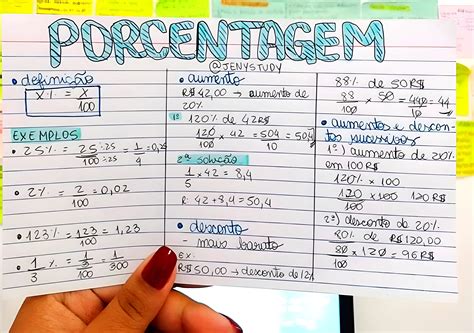 PORCENTAGEM
@JENYSTUDY
• definição
x% = x/100
EXEMPLOS
• 25% = 25:25/100:25 = 1/4
• 2% = 2/100 = 0,02
• 123% = 123/100 = 1,23
• 1/3 % = 1/3/100 = 1/300
• aumento
R$42,00 → aumento de
20%
1ª 120% de 42R$
120/100 × 42 = 504/10 = 50,4
2ª solução
1/5 × 42 = 8,4
R: 42 + 8,4 = 50,4
• desconto
- mais barato
ex:
R$50,00 → desconto de 12%
88% de 50R$
88/100 × 50 = 440/10 = 44
• aumentos e descon-
tos sucessivos
1º) aumento de 20%
em 100R$
120% × 100
120/100 × 100 120R$
2º) desconto de 20%
80% de R$120,00
80/100 × 120 = 96R$